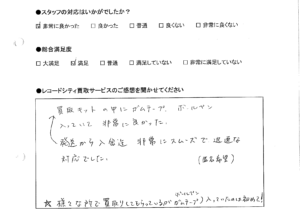 ●スタッフの対応はいかがでしたか?
☑ 非常に良かった □ 良かった □ 普通 □ 良くない □ 非常に良くない
●総合満足度
□ 大満足 ☑ 満足 □ 普通 □ 満足していない □ 非常に満足していない
●レコードシティ買取サービスのご感想を聞かせてください
買取キットの中にガムテープ、ボールペン
入っていて 非常に良かった。
発送から入金迄 非常にスムーズで迅速な
対応でした。 (匿名希望)
ボールペン
☆ 様々な所で買取りしてもらっているが ガムテープ入っていたのは初めて!